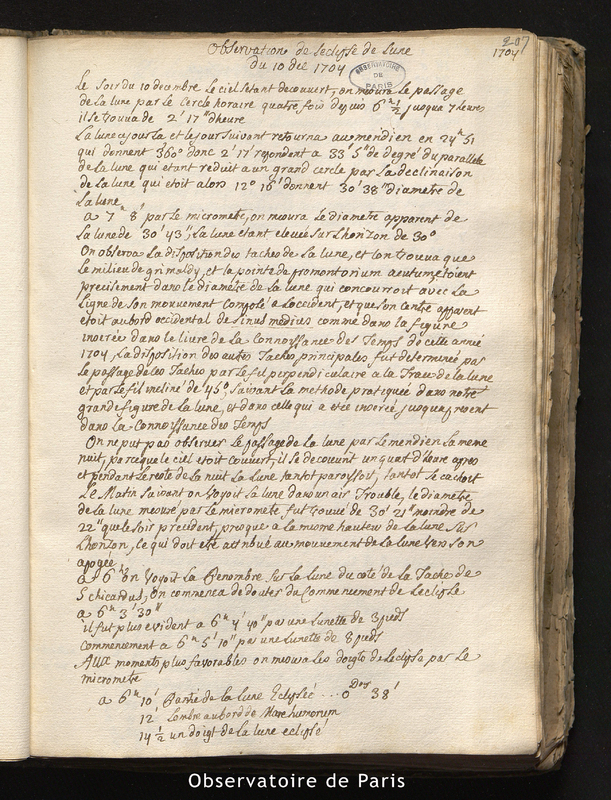 207
1704
Observation de leclypse de Lune
du 10 dec 1704
OBSERVATOIRE DE PARIS
Le Soir du 10 decembre Le ciel étant decouvert, on mesura le passage
de la lune par le Cercle horaire quatre fois depuis 6h 1/2 jusqua 7 heures
il se trouva de 2' 17" dheure
La lune ce jour la et le jour suivant retourna au meridien en 24h 51
qui donnent 360° donc 2' 17" repondent a 33' 5" de degré du parallele
de la lune qui etant reduit a un grand cercle par la declinaison
de la Lune qui etoit alors 12° 16' donnent 30' 38" diametre de
La lune
a 7h 8' par le micrometre, on mesura Le diametre apparent de
la lune de 30' 43", La lune etant elevée sur Lhorizon de 30°
On observa La disposition des taches de La lune, et lon trouva que
Le milieu de grimaldy, et la pointe de promontorium acutum etoient
precisement dans le diametre de la lune qui concourroit avec La
ligne de son mouvement a Loccident, et que son centre apparent
etoit au bord occidental de sinus medius comme dans la figure
inserée dans le livre de La Connoissance des Temps de cette année
1704, La disposition des autres Taches principales fut determinée par
Le passage de ces Taches par Le fil perpendiculaire a la Trace de la lune
et par le fil incliné de 45°, suivant La methode pratiquée dans notre
grande figure de La lune, et dans celle qui a eté inserée jusqua present
dans La Connoissance des Temps
On ne put pas observer Le passage de La lune par Le meridien La meme
nuit, parce que Le ciel etoit couvert, il se decouvrit un quart dheure apres
et pendant Le reste de la nuit La Lune tantot paroissoit, tantot se cachoit
Le Matin suivant on voyoit La lune dans un air Trouble, le diametre
de la lune mesuré par le micrometre fut trouvé de 30' 21" moindre de
22" que le soir precedent, presque a La mesme hauteur de La lune sur
Lhorizon, Ce qui doit etre attribué au mouvement de la lune vers son
apogée
a 6h on voyoit La Penombre sur La lune du coté de La Tache de
Schicardus, on commenca de douter du Commencement de Leclipse
a 6h 3' 30"
il fut plus evident a 6h 4' 40" par une lunette de 3 pieds
Commencement a 6h 5' 10" par une lunette de 8 pieds
Aux moments plus favorables on mesura les doigts de Leclipse par Le
micrometre
a 6h 10' Partie de la lune Eclipsée ... 0 Dog 38'
12 Lombre au bord de Mare humorum
14 1/2 un doigt de la lune eclipsé
Observatoire de Paris